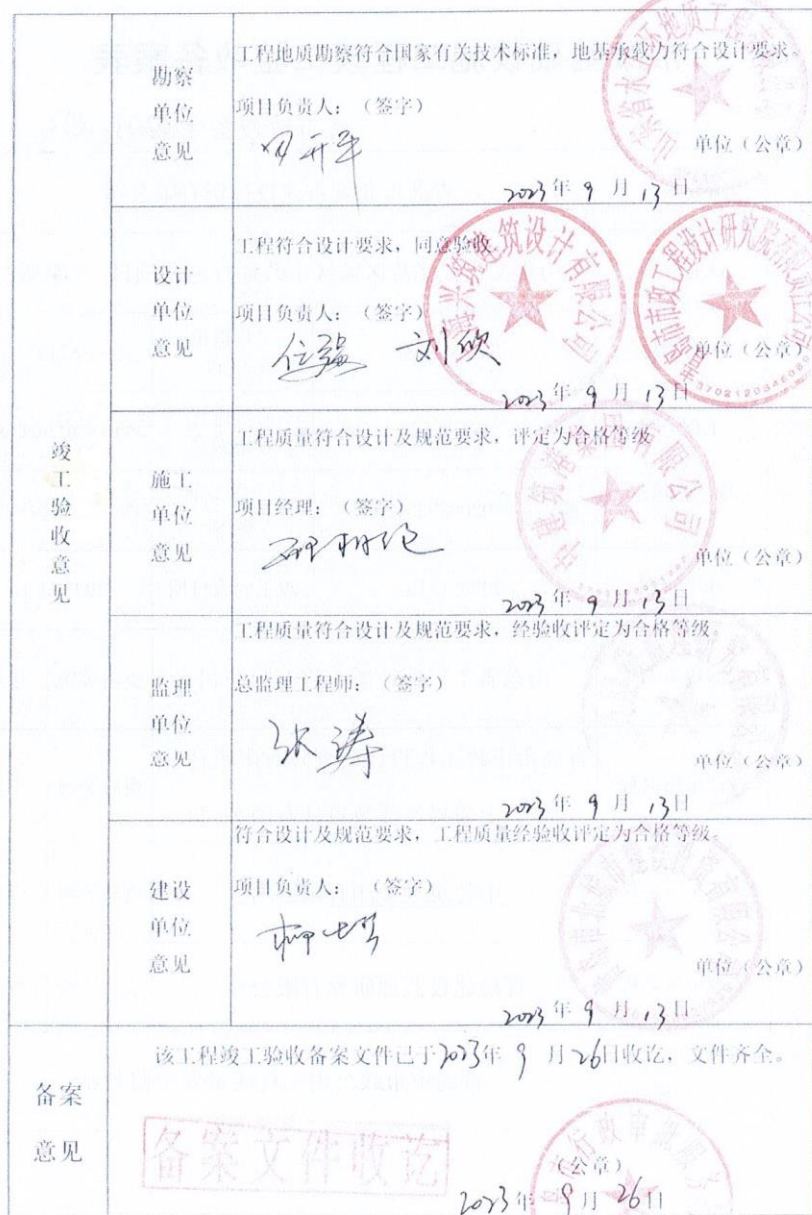 竣工验收意见
勘察单位意见
工程地质勘察符合国家有关技术标准，地基承载力符合设计要求。
项目负责人：（签字）
单位（公章）
2023年 9 月 13 日
设计单位意见
工程符合设计要求，同意验收。
项目负责人：（签字）
刘欣
单位（公章）
2023年 9 月 13 日
筑建筑设计有限公司
市政工程设计研究院有限责任公司
施工单位意见
工程质量符合设计及规范要求，评定为合格等级
项目经理：（签字）
单位（公章）
2023年 9 月 13 日
监理单位意见
工程质量符合设计及规范要求，经验收评定为合格等级。
总监理工程师：（签字）
张涛
单位（公章）
2023年 9 月 13 日
建设单位意见
符合设计及规范要求，工程质量经验收评定为合格等级。
项目负责人：（签字）
单位（公章）
2023年 9 月 13 日
备案意见
该工程竣工验收备案文件已于2023年 9 月26日收讫，文件齐全。
备案文件收讫
行政审批服务
（公章）
2023年 9月 26日